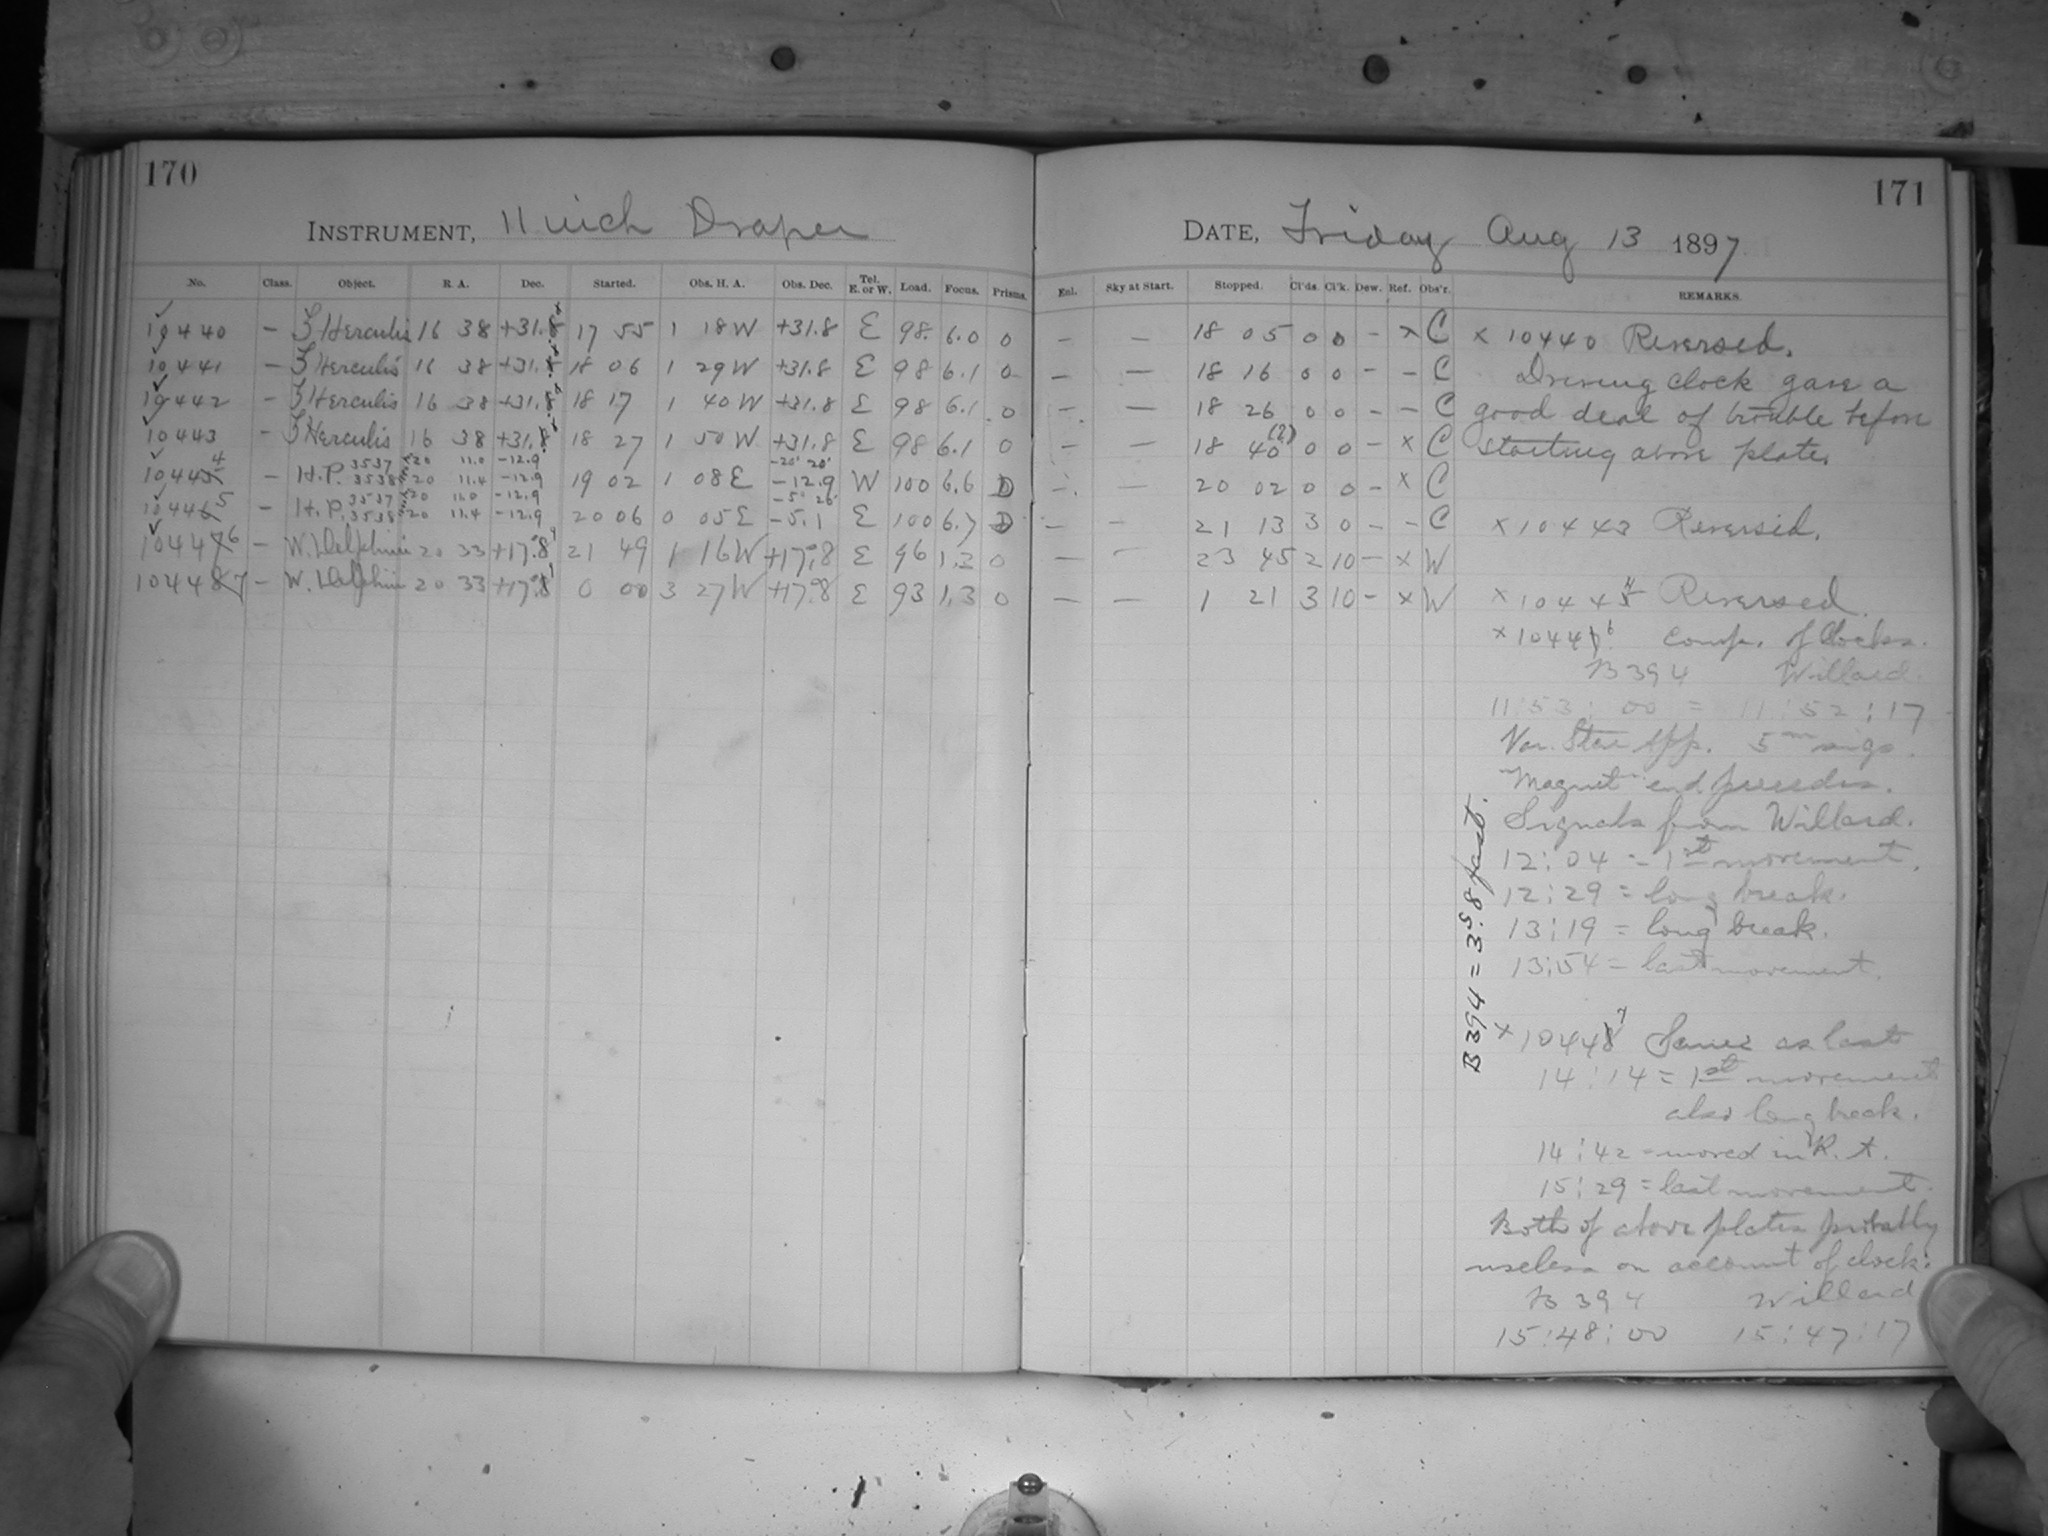 170
INSTRUMENT, 11 inch Draper
No. Class. Object. R. A. Dec. Started. Obs. H. A. Obs. Dec. Tel. E. or W. Load. Focus. Prisms.
10440 — ζ Herculis 16 38 +31.8 17 55 1 18 W +31.8 E 98. 6.0 0
10441 — ζ Herculis 16 38 +31.8 18 06 1 29 W +31.8 E 98 6.1 0
10442 — ζ Herculis 16 38 +31.8 18 17 1 40 W +31.8 E 98 6.1 0
10443 — ζ Herculis 16 38 +31.8 18 27 1 50 W +31.8 E 98 6.1 0
10444 — H.P. 3537 20 11.0 -12.9
3538 20 11.4 -12.9 19 02 1 08 E -12.9 W 100 6.6 D
10445 — H.P. 3537 20 11.0 -12.9
3538 20 11.4 -12.9 20 06 0 05 E -5.1 E 100 6.7 D
10446 — W. Delphini 20 33 +17.8 21 49 1 16 W +17.8 E 96 1.3 0
10447 — W. Delphini 20 33 +17.8 0 00 3 27 W +17.8 E 93 1.3 0
171
DATE, Friday Aug 13 1897
Enl. Sky at Start. Stopped. Cl'ds. Cl'k. Dew. Ref. Obs'r. REMARKS.
— — 18 05 0 0 — x C
— — 18 16 0 0 — — C
— — 18 26 0 0 — — C
— — 18 40 (?) 0 0 — x C
— — 20 02 0 0 — x C
— — 21 13 3 0 — — C
— — 23 45 2 10 — x W
— — 1 21 3 10 — x W
x 10440 Reversed.
Driving clock gave a
good deal of trouble before
starting above plate.
x 10443 Reversed.
x 10444 Reversed.
x 10446 Comp. of Clocks.
B 394 Willard
11:53:00 = 11:52:17
Var. Star App. 5m sngs.
"Magnet" end precedes.
Signals from Willard.
12:04 = 1st movement.
12:29 = long break.
13:19 = long break.
13:54 = last movement.
B 394 = 3s.8 fast.
x 10447 Same as last
14:14 = 1st movement
also long break.
14:42 = moved in R. A.
15:29 = last movement.
Both of above plates probably
useless on account of clock:
B 394 Willard
15:48:00 15:47:17